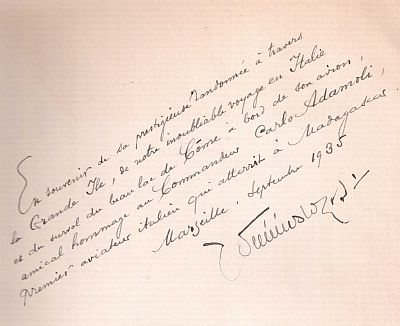 En souvenir de sa prestigieuse randonnée à travers
la Grande Ile, de notre inoubliable voyage en Italie
et du survol du beau lac de Côme à bord de son avion,
amical hommage au Commandeur Carlo Adamoli,
premier aviateur italien qui atterrit à Madagascar.
Marseille, Septembre 1935